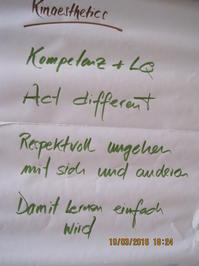 Kinaesthetics
Kompetenz + LQ
Act different
Respektvoll umgehen
mit sich und anderen
Damit Lernen einfach
wird
19/03/2016 19:24